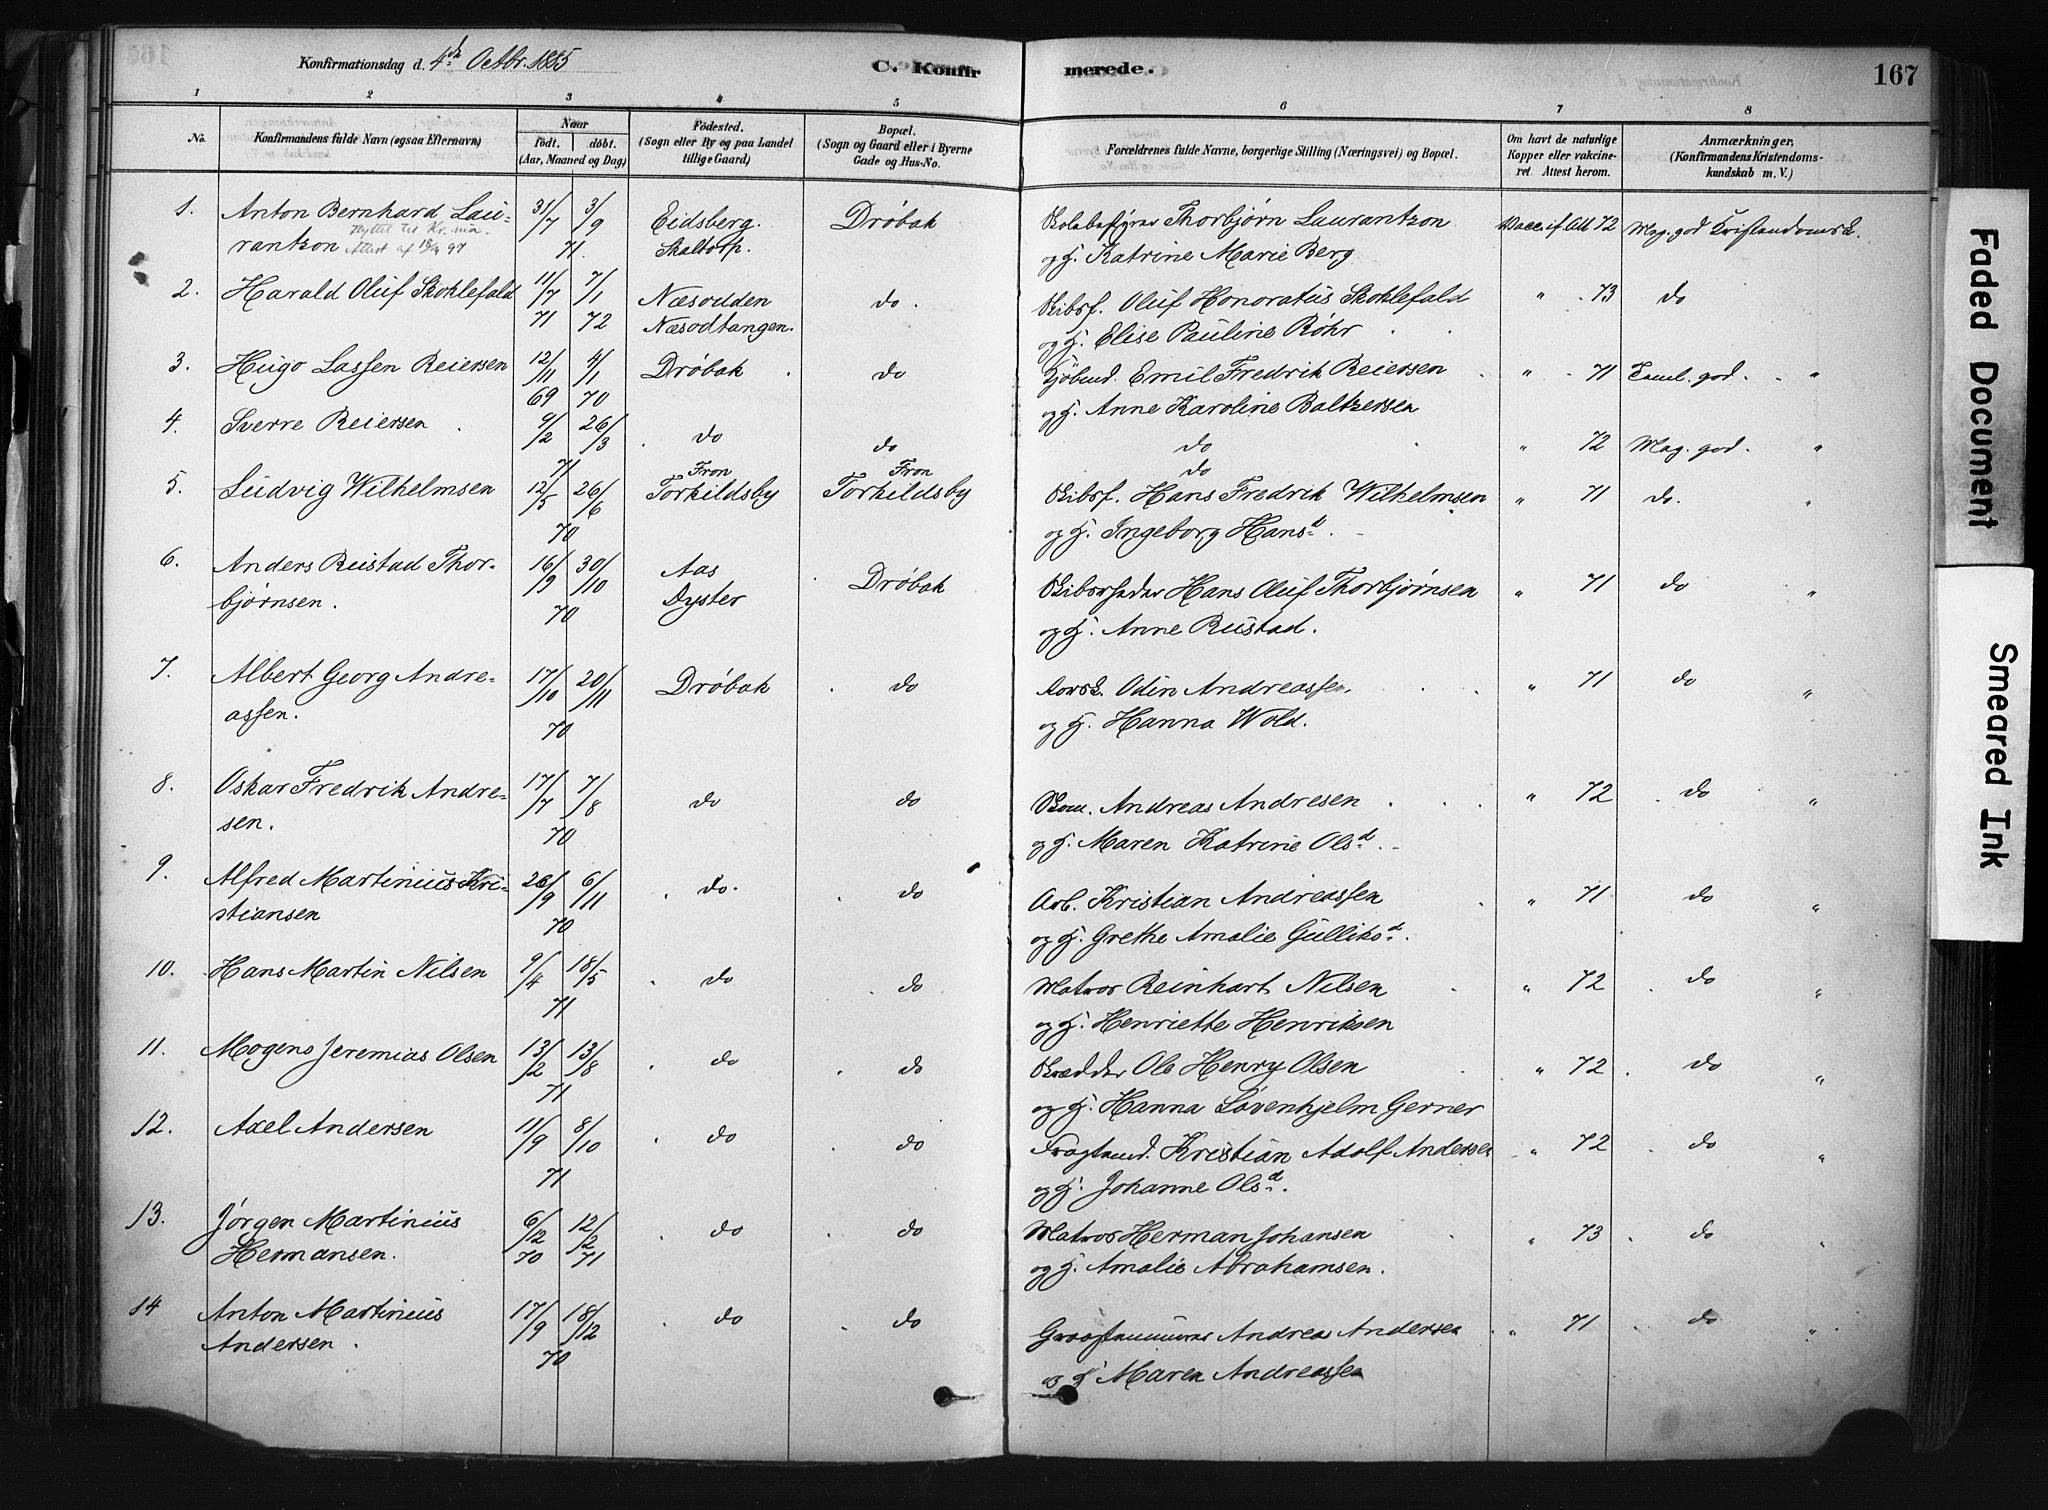 Konfirmationsdag d. 4de Octbr. 1885
C. Konfirmerede.
167
1 2 3 4 5 6 7 8
No.
Konfirmandens fulde Navn (ogsaa Efternavn)
Naar
födt. döbt.
(Aar, Maaned og Dag)
Födested.
(Sogn eller By og paa Landet
tillige Gaard)
Bopæl.
(Sogn og Gaard eller i Byerne
Gade og Hus-No.
Forældrenes fulde Navne, borgerlige Stilling (Næringsvei) og Bopæl.
Om havt de naturlige
Kopper eller vakcine-
ret. Attest herom.
Anmærkninger,
(Konfirmandens Kristendoms-
kundskab m. V.)
1. Anton Bernhard Lau- 31/7 3/9 Eidsberg. Drøbak Thorbjørn Laurantzon 72 Mag. god Kristendomsk.
flyttet til Kr.nia.
rantzon Attest af 71. Skaltorp. og H. Katrine Marie Berg
2. Harald Oluf Skoklefald 11/7 7/1 Næsodden do. Skibsf. Oluf Honoratus Skoklefald " 73 do
71 72 Næsodtangen. og H. Elise Pauline Röhr
3. Hugo Lassen Reiersen 12/11 4/1 Drøbak do Kjöbmd. Emil Fredrik Reiersen " 71 Taml. god. "
69 70 og H. Anne Karoline Baltzersen
4. Sverre Reiersen 9/2 26/3 do do do " 72 Mag. god. "
71 Fron Fron do
5. Ludvig Wilhelmsen 12/5 26/6 Torkildsby Torkildsby Skibsf. Hans Fredrik Wilhelmsen " 71 do. "
70 og H. Ingeborg Hansd.
6. Anders Rustad Thor- 16/9 30/10 Aas Drøbak Hans Oluf Thorbjørnsen " 71 do "
bjørnsen. 70 Dyster og H. Anne Rustad.
7. Albert Georg Andre- 17/10 20/11 Drøbak do Odin Andreassen. " 71 do "
assen. 70 og H. Hanna Wold.
8. Oskar Fredrik Andre- 17/7 7/8 do do Skom. Andreas Andresen " 72 do "
sen. 70 og H. Maren Katrine Olsd.
9. Alfred Martinius Kri- 26/9 6/11 do. do Arb. Kristian Andreassen " 71 do "
stiansen 70 og H. Grethe Amalie Gulliksd.
10. Hans Martin Nilsen 9/4 18/5 do do Matros Reinhart Nilsen " 72 do "
71 og H. Henriette Henriksen
11. Mogens Jeremias Olsen 13/2 13/8 do do Skrædder Ole Henry Olsen " 72 do "
71 og H. Hanna Løvenhjelm Gerner
12. Axel Andersen 11/9 8/10 do do Fragtemd. Kristian Adolf Andersen " 72 do "
71 og H. Johanne Olsd.
13. Jørgen Martinius 6/12 12/2 do do Matros Herman Johansen " 73 do "
Hermansen. 70 71 og H. Amalie Abrahamsen.
14 Anton Martinius 17/9 18/12 do do Andreas Andersen " 71 do "
Andersen. 70 og H Maren Andreassen
Faded Document
Smeared Ink